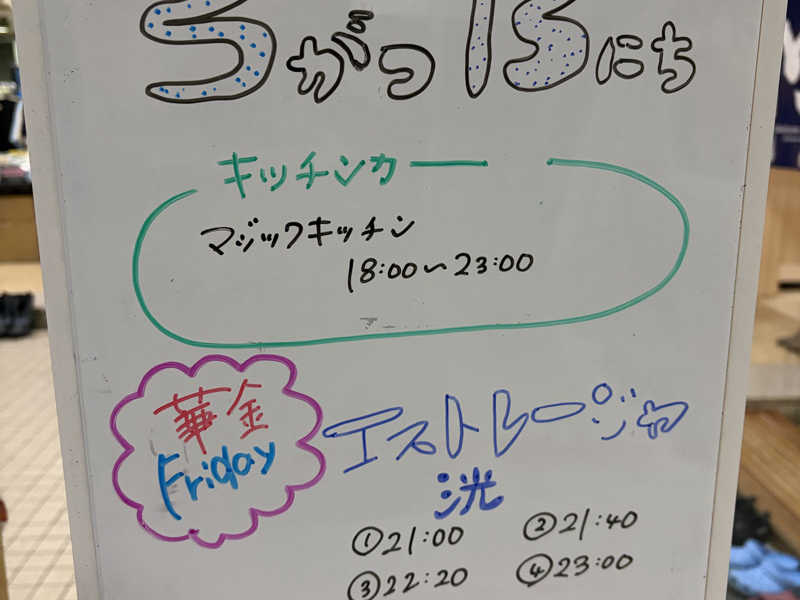 5がつ13にち
キッチンカー
マジックキッチン
18:00〜23:00
華金
Friday
エストレージャ
洸
①21:00 ②21:40
③22:20 ④23:00